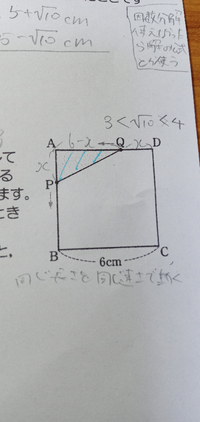 5+√10 cm
5-√10 cm
因数分解
使えなかったら
解の公式
とか使う
3<√10<4
A 6-x Q x D
して
x
る
P
ます。
とき
と、
B 6cm C
同じ長さと同じ速さで動く